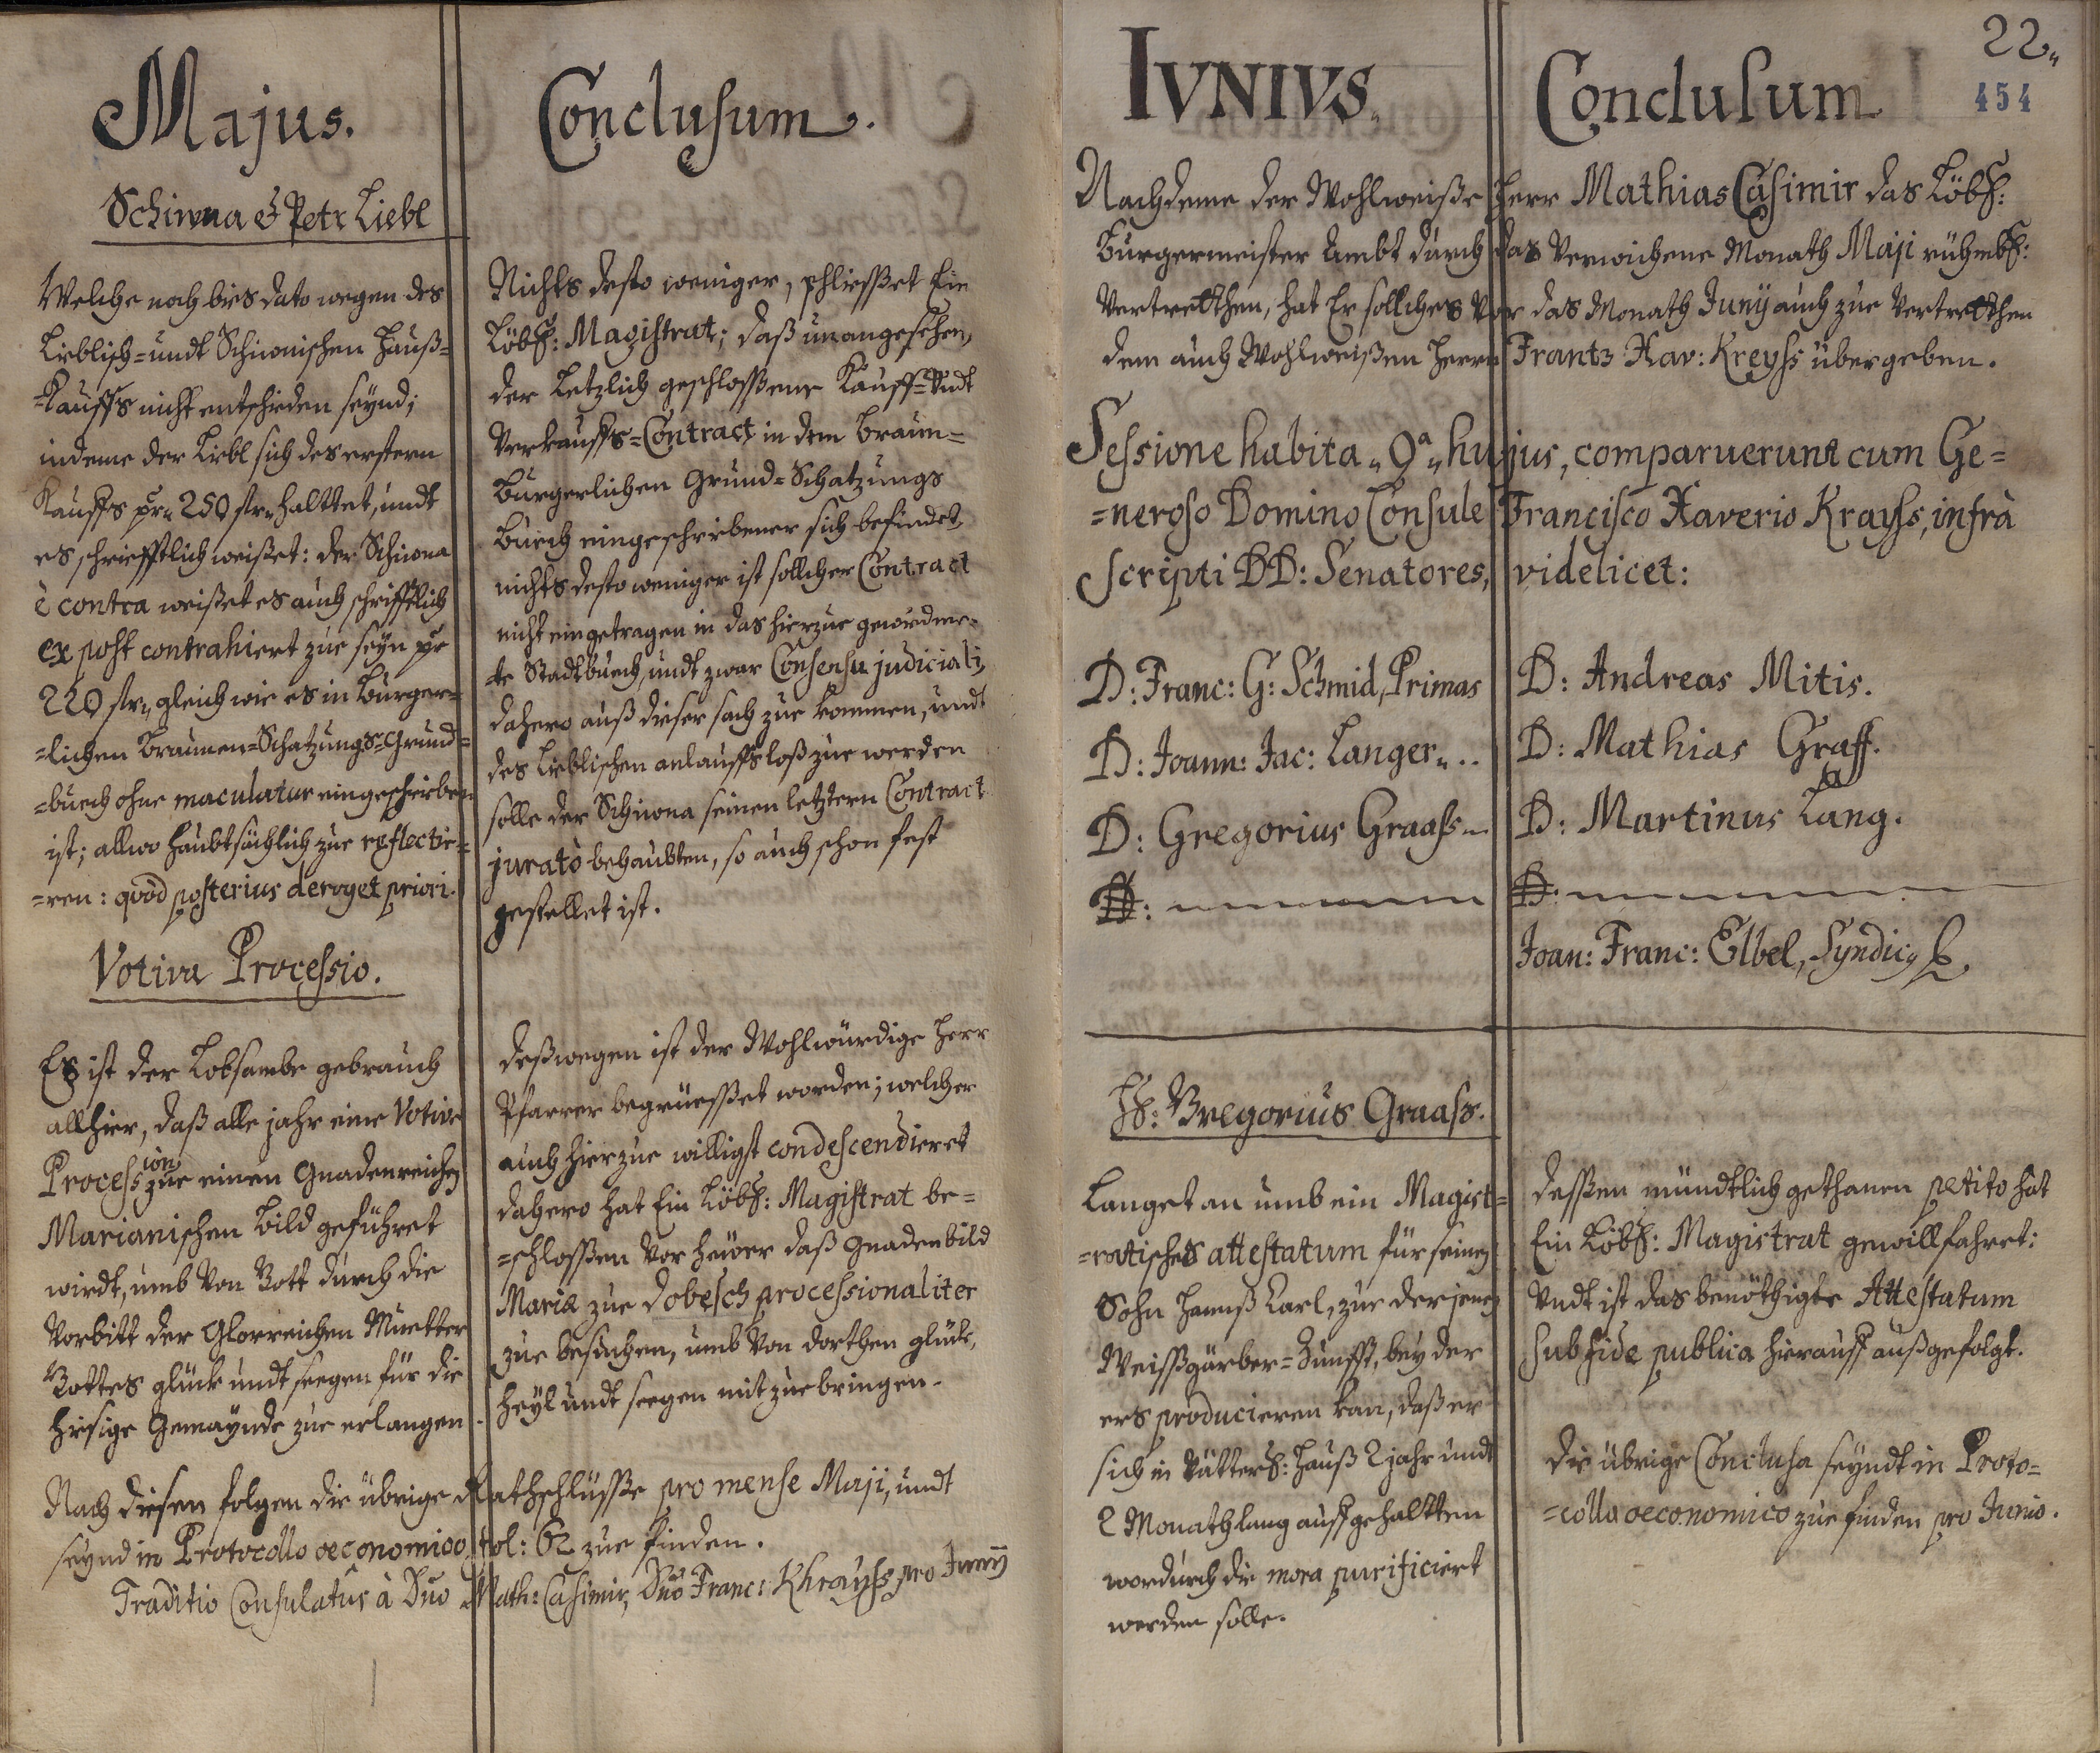 Majus.
Schiwna & Petr Liebl
Welche noch bies dato wegen des
Lieblisch- undt Schiwonischen Hauß-
-Kauffs nicht entschieden seynd;
indeme der Liebl sich des erstern
Kauffs pr 250 str haltet, undt
es schriefftlich weißet: der Schiwna
è contra weißet es auch schrifftlich
ex post contrahiert zue seyn pr
220 str, gleich wie es in Burger-
=lichen Braunen-Schatzungs-Grund-
=buech ohne maculatur eingeschrieben
ist; allwo haubtsächlich zue reflectie-
=ren: quòd posterius deroget priori.
Votiva Processio.
Es ist der Lobsambe gebrauch
allhier, daß alle jahr eine Votive
Procession zue einen Gnadenreichen
Marianischen Bild geführet
wirdt, umb von Gott durch die
Vorbitt der Glorreichen Muetter
Gottes glück undt seegen für die
hiesige Gemaynde zue erlangen.
Conclusum.
Nichts desto weniger, schliesset Ein
Löbl: Magistrat; daß unangesehen,
der Letzlich geschlossene Kauff- undt
Verkauffs-Contract in dem Braun-
Burgerlichen Grund-Schatzungs
Buech eingeschriebener sich befindet,
nichts desto weniger ist sollcher Contract
nicht eingetragen in das hierzue gewidme-
-te Stadtbuech, undt zwar Consensu judiciali,
dahero auß dieser sach zue kommen, undt
des Lieblischen anlauffs loß zue werden
solle der Schiwna seinen letztern Contract
juratò behaubten, so auch schon fest
gestellet ist.
deßwegen ist der Wohlwürdige Herr
Pfarrer begrüesset worden; welcher
auch hierzue willigst condescendieret
dahero hat Ein Löbl: Magistrat be-
=schlossen vor heuer daß Gnadenbild
Mariæ zue Dobesch processionaliter
zue besuchen, umb von dorthen glück,
heyl undt seegen mit zue bringen.
Nach diesen folgen die übrige Rathschlüsse pro mense Maji, undt
seynd in Protocollo oeconomico fol: 62 zue finden.
Traditio Consulatûs à Dno Math: Casimir, Dnô Franc: Khrayss pro Junÿ
22.
454
IVNIVS.
Conclusum
Nachdeme der Wohlweiße Herr Mathias Casimir das Löbl:
Burgermeister Ambt durch das verwichene Monath Maji rühmbl:
vertretten, hat Er solches vor das Monath Junÿ auch zue vertretten
dem auch Wohlweißen Herrn Frantz Xav: Kreyss übergeben.
Sessione habita 9a hujus, comparuerunt cum Ge=
=neroso Domino Consule Francisco Xaverio Krayss, infrà
scripti DD: Senatores, videlicet:
D: Franc: G: Schmid, Primas
D: Joann: Jac: Langer
D: Gregorius Graass
D:
D: Andreas Mitis.
D: Mathias Graff.
D: Martinus Lang.
D:
Joan: Franc: Elbel, Syndic
H: Gregorius Graass.
Langet an umb ein Magist-
=ratisches attestatum für seinen
Sohn Hannß Carl, zue derjenen
Weissgärber-Zunfft, bey der
ers producieren kan, daß er
sich in Vätterl: Hauß 2 jahr undt
2 Monath lang auffgehaltten
wordurch die mora purificiert
werden solle.
dessen mündtlich gethanen petito hat
Ein Löbl: Magistrat gewillfahret:
undt ist das benöthigte Attestatum
sub fide publica hierauff außgefolgt.
die übrige Conclusa seyndt in Proto=
=collo oeconomico zue finden pro Junio.